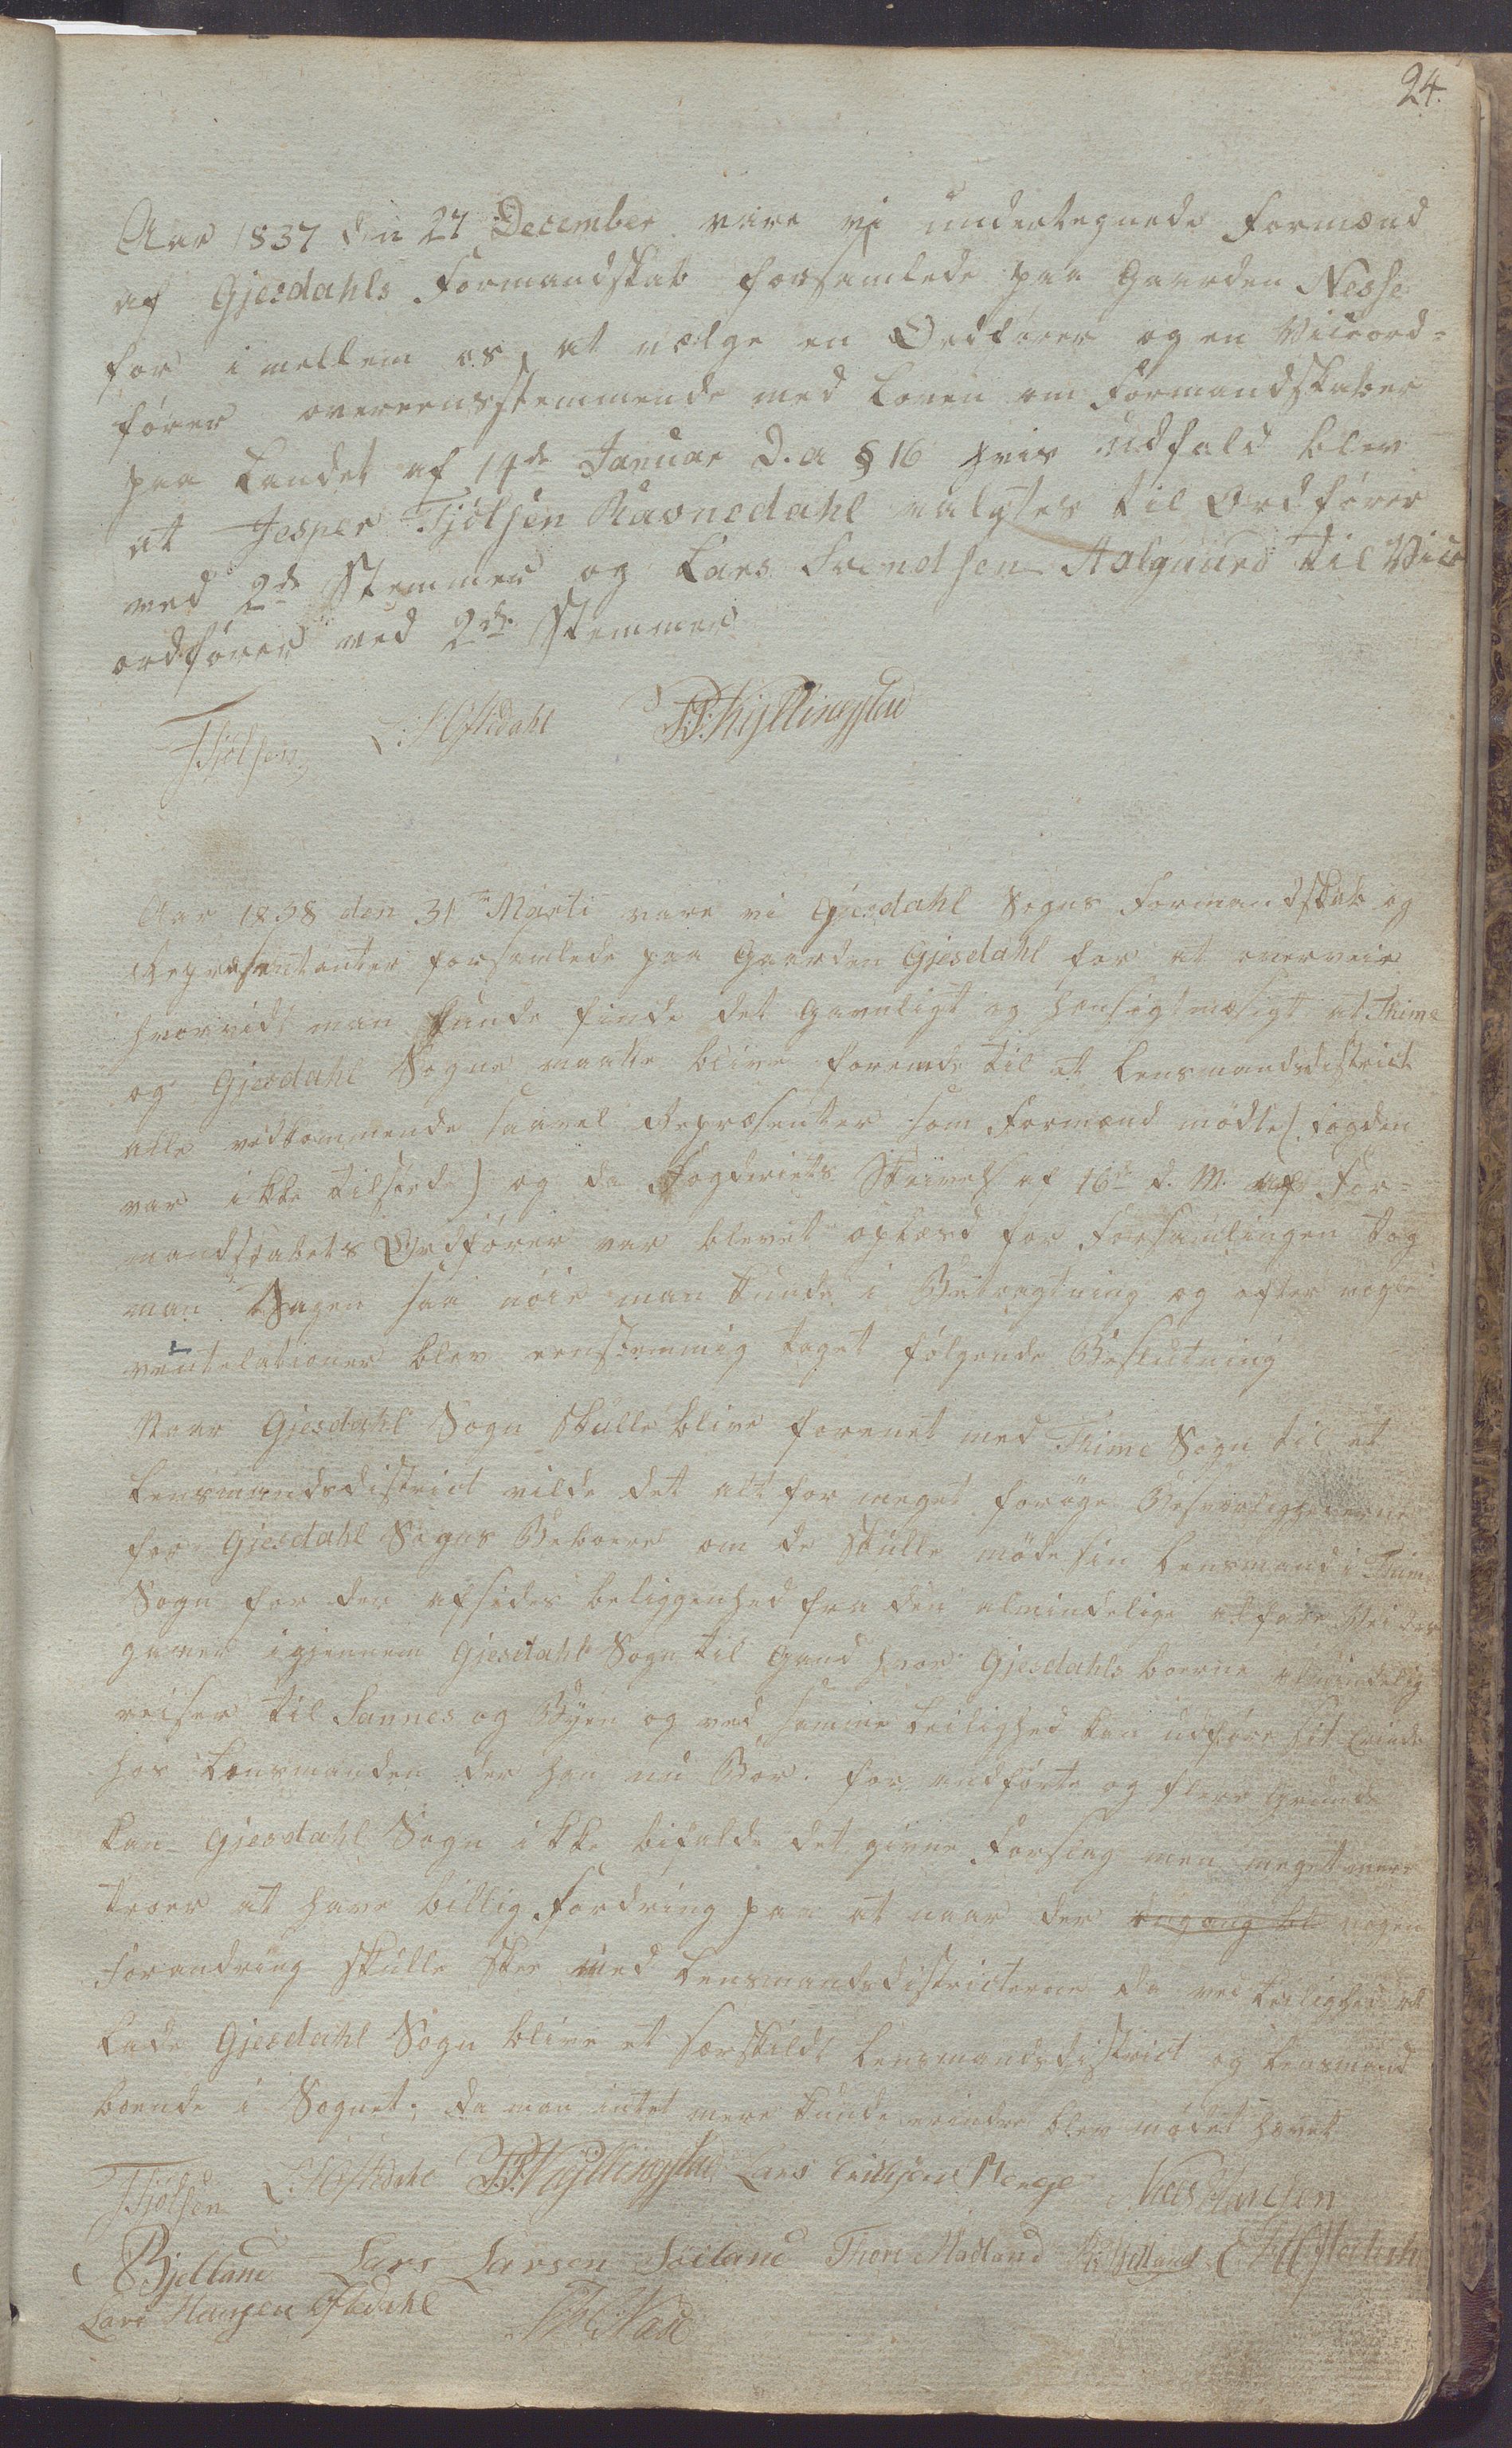 24.
Aar 1837 den 27 December vare vi undertegnede Formænd
af Gjesdahls Formandskab forsamlede paa Gaarden Nesse
for imellem os, at vælge en Ordfører og en Viceord=
fører overeensstemmende med Loven om Formandskaber
paa Landet af 14de Januar D.a § 16 hvis udfald blev
at Jesper Tjölsen Ravnedahl valgtes til Ordfører
med 2de Stemmer og Lars Svendsen Aalgaard til Vice
ordfører med 2de Stemmer
Tjölsen L: Oftedahl Kyllingstad
Aar 1838 den 31te Marti vare vi Gjesdahl Sogns Formandskab og
Repræsentanter forsamlede paa Gaarden Gjesdahl for at overveie
hvorvidt man kunde finde det gavnligt og hensigtmæsigt at Thime
og Gjesdahl Sogne maatte blive forenede til et Lensmandsdistrict
alle vedkommende saavel Repræsenter som Formænd mødte (Fogden
var ikke tilstede) og da Fogderiets Skrivels af 16de d. M. af For=
mandskabets Ordfører var blevet oplæsd for Forsamlingen tog
man Sagen saa nøie man kunde i Betragtning og efter nogle
ventelationer blev eenstemmig taget følgende Beslutning
Naar Gjesdahl Sogn skulle blive forenet med Thime Sogn til et
Lensmandsdistrict vilde det alt for meget forøge Besværlighederne
for Gjesdahl Sogns Beboere om de skulle møde sin Lensmand i Thime
Sogn for der afsides beliggenhed fra den almindelige alfare Vei der
gaaer igjennem Gjesdahl Sogn til Gand hvor Gjesdahls boerne almindelig
reiser til Sannes og Byen og ved samme Leilighed kan udføre sit Erinde
hos Lensmanden der han nu Bor. for andførte og flere Grunde
kan Gjesdahl Sogn ikke bifalde det givne Forslag men meget mere
troer at have billig Fordring paa at naar der engang bl nogen
Forandring skulle skee med Lensmandsdistricterne da ved Leilighed at
lade Gjesdahl Sogn blive et særskildt Lensmandsdistrict og Lensmand
boende i Sognet; da man intet mere kunde erindre blev mødet hævet
Tjölsen L: Oftedahl Kyllingstad Lars
Bjelland Lars Larsen Söiland Thore Madland
Lars Hansen